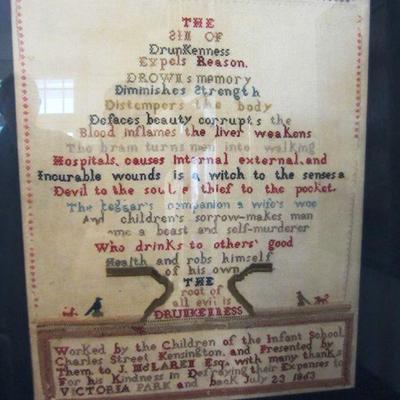 THE
SIN OF
DrunKenness
Expels Reason.
DROWNs memory
Diminishes Strength
Distempers the body
Defaces beauty corrupts the
Blood inflames the liver weakens
The brain turns men into walking
Hospitals, causes internal external. and
Incourable wounds is a witch to the senses a
Devil to the soul, a thief to the pocket.
The beggar's companion a wife's woe
And children's sorrow-makes man
a beast and self-murderer
Who drinks to others' good
Health and robs himself
of his own
THE
root of
all evil is
DRUNKENNESS
Worked by the Children of the Infant School
Charles Street Kensington. and Presented by
Them to J. McLAREN Esq. with many thanks
For his Kindness in Defraying their Expenses to
VICTORIA PARK and back July 23 1863